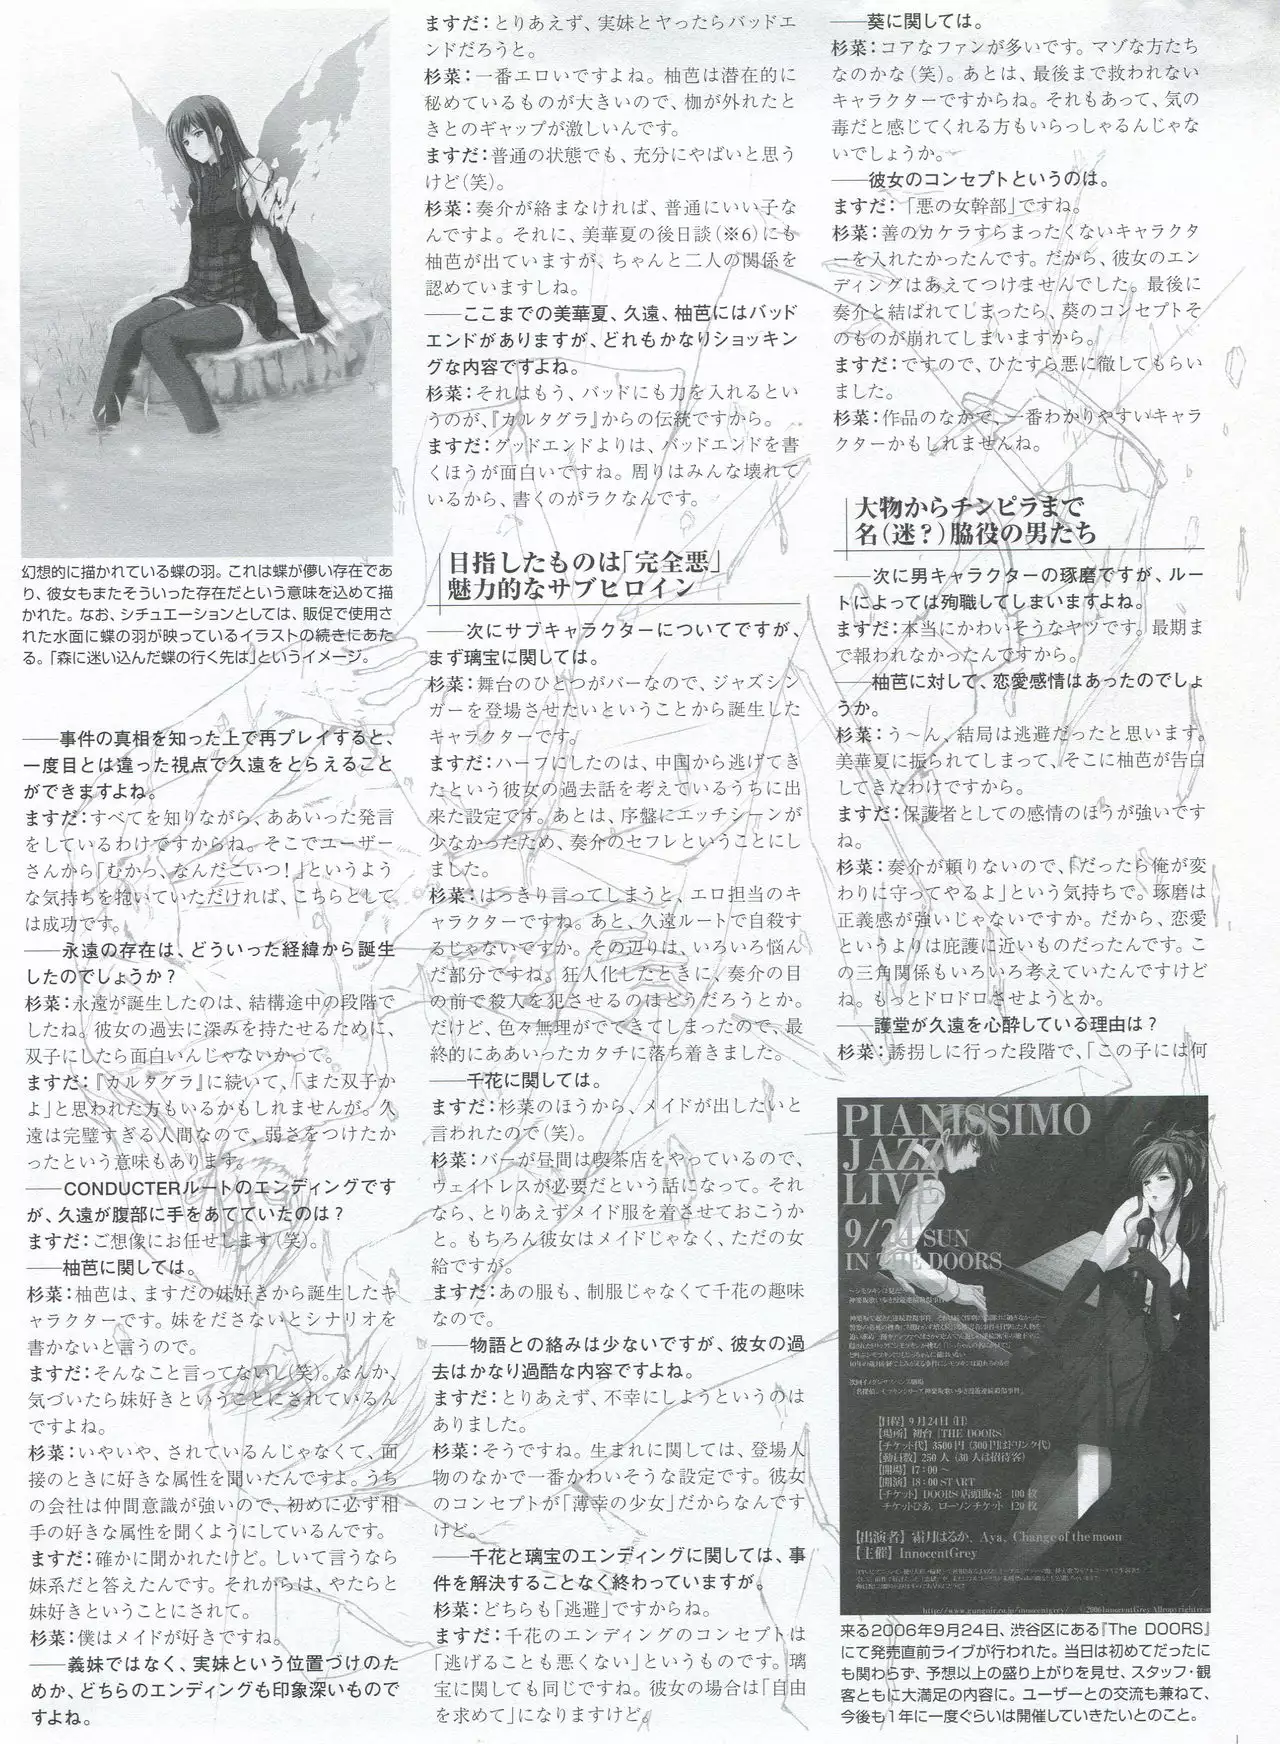 幻想的に描かれている蝶の羽。これは蝶が儚い存在であ
り、彼女もまたそういった存在だという意味を込めて描
かれた。なお、シチュエーションとしては、販促で使用さ
れた水面に蝶の羽が映っているイラストの続きにあた
る。「森に迷い込んだ蝶の行く先は」というイメージ。
——事件の真相を知った上で再プレイすると、
一度目とは違った視点で久遠をとらえること
ができますよね。
ますだ：すべてを知りながら、ああいった発言
をしているわけですからね。そこでユーザー
さんから「むかっ、なんだこいつ！」というよう
な気持ちを抱いていただければ、こちらとして
は成功です。
——永遠の存在は、どういった経緯から誕生
したのでしょうか？
杉菜：永遠が誕生したのは、結構途中の段階で
したね。彼女の過去に深みを持たせるために、
双子にしたら面白いんじゃないかって。
ますだ：『カルタグラ』に続いて、「また双子か
よ」と思われた方もいるかもしれませんが。久
遠は完璧すぎる人間なので、弱さをつけたか
ったという意味もあります。
——CONDUCTERルートのエンディングです
が、久遠が腹部に手をあてていたのは？
ますだ：ご想像にお任せします（笑）。
——柚芭に関しては。
杉菜：柚芭は、ますだの妹好きから誕生したキ
ャラクターです。妹をださないとシナリオを
書かないと言うので。
ますだ：そんなこと言ってないし（笑）。なんか、
気づいたら妹好きということにされているん
ですよね。
杉菜：いやいや、されているんじゃなくて、面
接のときに好きな属性を聞いたんですよ。うち
の会社は仲間意識が強いので、初めに必ず相
手の好きな属性を聞くようにしているんです。
ますだ：確かに聞かれたけど。しいて言うなら
妹系だと答えたんです。それからは、やたらと
妹好きということにされて。
杉菜：僕はメイドが好きですね。
——義妹ではなく、実妹という位置づけのた
めか、どちらのエンディングも印象深いもので
すよね。
ますだ：とりあえず、実妹とヤったらバッドエ
ンドだろうと。
杉菜：一番エロいですよね。柚芭は潜在的に
秘めているものが大きいので、枷が外れたと
きとのギャップが激しいんです。
ますだ：普通の状態でも、充分にやばいと思う
けど（笑）。
杉菜：奏介が絡まなければ、普通にいい子な
んですよ。それに、美華夏の後日談（※6）にも
柚芭が出ていますが、ちゃんと二人の関係を
認めていますしね。
——ここまでの美華夏、久遠、柚芭にはバッド
エンドがありますが、どれもかなりショッキン
グな内容ですよね。
杉菜：それはもう、バッドにも力を入れるとい
うのが、『カルタグラ』からの伝統ですから。
ますだ：グッドエンドよりは、バッドエンドを書
くほうが面白いですね。周りはみんな壊れて
いるから、書くのがラクなんです。
目指したものは「完全悪」
魅力的なサブヒロイン
——次にサブキャラクターについてですが、
まず璃宝に関しては。
杉菜：舞台のひとつがバーなので、ジャズシン
ガーを登場させたいということから誕生した
キャラクターです。
ますだ：ハーフにしたのは、中国から逃げてき
たという彼女の過去話を考えているうちに出
来た設定です。あとは、序盤にエッチシーンが
少なかったため、奏介のセフレということにし
ました。
杉菜：はっきり言ってしまうと、エロ担当のキ
ャラクターですね。あと、久遠ルートで自殺す
るじゃないですか。その辺りは、いろいろ悩ん
だ部分ですね。狂人化したときに、奏介の目
の前で殺人を犯させるのはどうだろうとか。
だけど、色々無理がでてきてしまったので、最
終的にああいったカタチに落ち着きました。
——千花に関しては。
ますだ：杉菜のほうから、メイドが出したいと
言われたので（笑）。
杉菜：バーが昼間は喫茶店をやっているので、
ウェイトレスが必要だという話になって。それ
なら、とりあえずメイド服を着させておこうか
と。もちろん彼女はメイドじゃなく、ただの女
給ですが。
ますだ：あの服も、制服じゃなくて千花の趣味
なので。
——物語との絡みは少ないですが、彼女の過
去はかなり過酷な内容ですよね。
ますだ：とりあえず、不幸にしようというのは
ありました。
杉菜：そうですね。生まれに関しては、登場人
物のなかで一番かわいそうな設定です。彼女
のコンセプトが「薄幸の少女」だからなんです
けど。
——千花と璃宝のエンディングに関しては、事
件を解決することなく終わっていますが。
杉菜：どちらも「逃避」ですからね。
ますだ：千花のエンディングのコンセプトは
「逃げることも悪くない」というものです。璃
宝に関しても同じですね。彼女の場合は「自由
を求めて」になりますけど。
——葵に関しては。
杉菜：コアなファンが多いです。マゾな方たち
なのかな（笑）。あとは、最後まで救われない
キャラクターですからね。それもあって、気の
毒だと感じてくれる方もいらっしゃるんじゃな
いでしょうか。
——彼女のコンセプトというのは。
ますだ：「悪の女幹部」ですね。
杉菜：善のカケラすらまったくないキャラクタ
ーを入れたかったんです。だから、彼女のエン
ディングはあえてつけませんでした。最後に
奏介と結ばれてしまったら、葵のコンセプトそ
のものが崩れてしまいますから。
ますだ：ですので、ひたすら悪に徹してもらい
ました。
杉菜：作品のなかで、一番わかりやすいキャラ
クターかもしれませんね。
大物からチンピラまで
名（迷？）脇役の男たち
——次に男キャラクターの琢磨ですが、ルー
トによっては殉職してしまいますよね。
ますだ：本当にかわいそうなヤツです。最期ま
で報われなかったんですから。
——柚芭に対して、恋愛感情はあったのでしょ
うか。
杉菜：う〜ん、結局は逃避だったと思います。
美華夏に振られてしまって、そこに柚芭が告白
してきたわけですから。
ますだ：保護者としての感情のほうが強いです
ね。
杉菜：奏介が頼りないので、「だったら俺が変
わりに守ってやるよ」という気持ちで。琢磨は
正義感が強いじゃないですか。だから、恋愛
というよりは庇護に近いものだったんです。こ
の三角関係もいろいろ考えていたんですけど
ね。もっとドロドロさせようとか。
——護堂が久遠を心酔している理由は？
杉菜：誘拐しに行った段階で、「この子には何
PIANISSIMO
JAZZ
LIVE
9/24 SUN
IN THE DOORS
【日程】9月24日（日）
【場所】初台「THE DOORS」
【チケット代】3500円（300円はドリンク代）
【動員数】250人（30人は招待客）
【開場】17：00〜
【開演】18：00 START
【チケット】DOORS店頭販売 100枚
チケットぴあ、ローソンチケット 120枚
【出演者】霜月はるか、Aya、Change of the moon
【主催】InnocentGrey
http://www.gungnir.co.jp/innocentgrey/
来る2006年9月24日、渋谷区にある『The DOORS』
にて発売直前ライブが行われた。当日は初めてだったに
も関わらず、予想以上の盛り上がりを見せ、スタッフ・観
客ともに大満足の内容に。ユーザーとの交流も兼ねて、
今後も1年に一度ぐらいは開催していきたいとのこと。